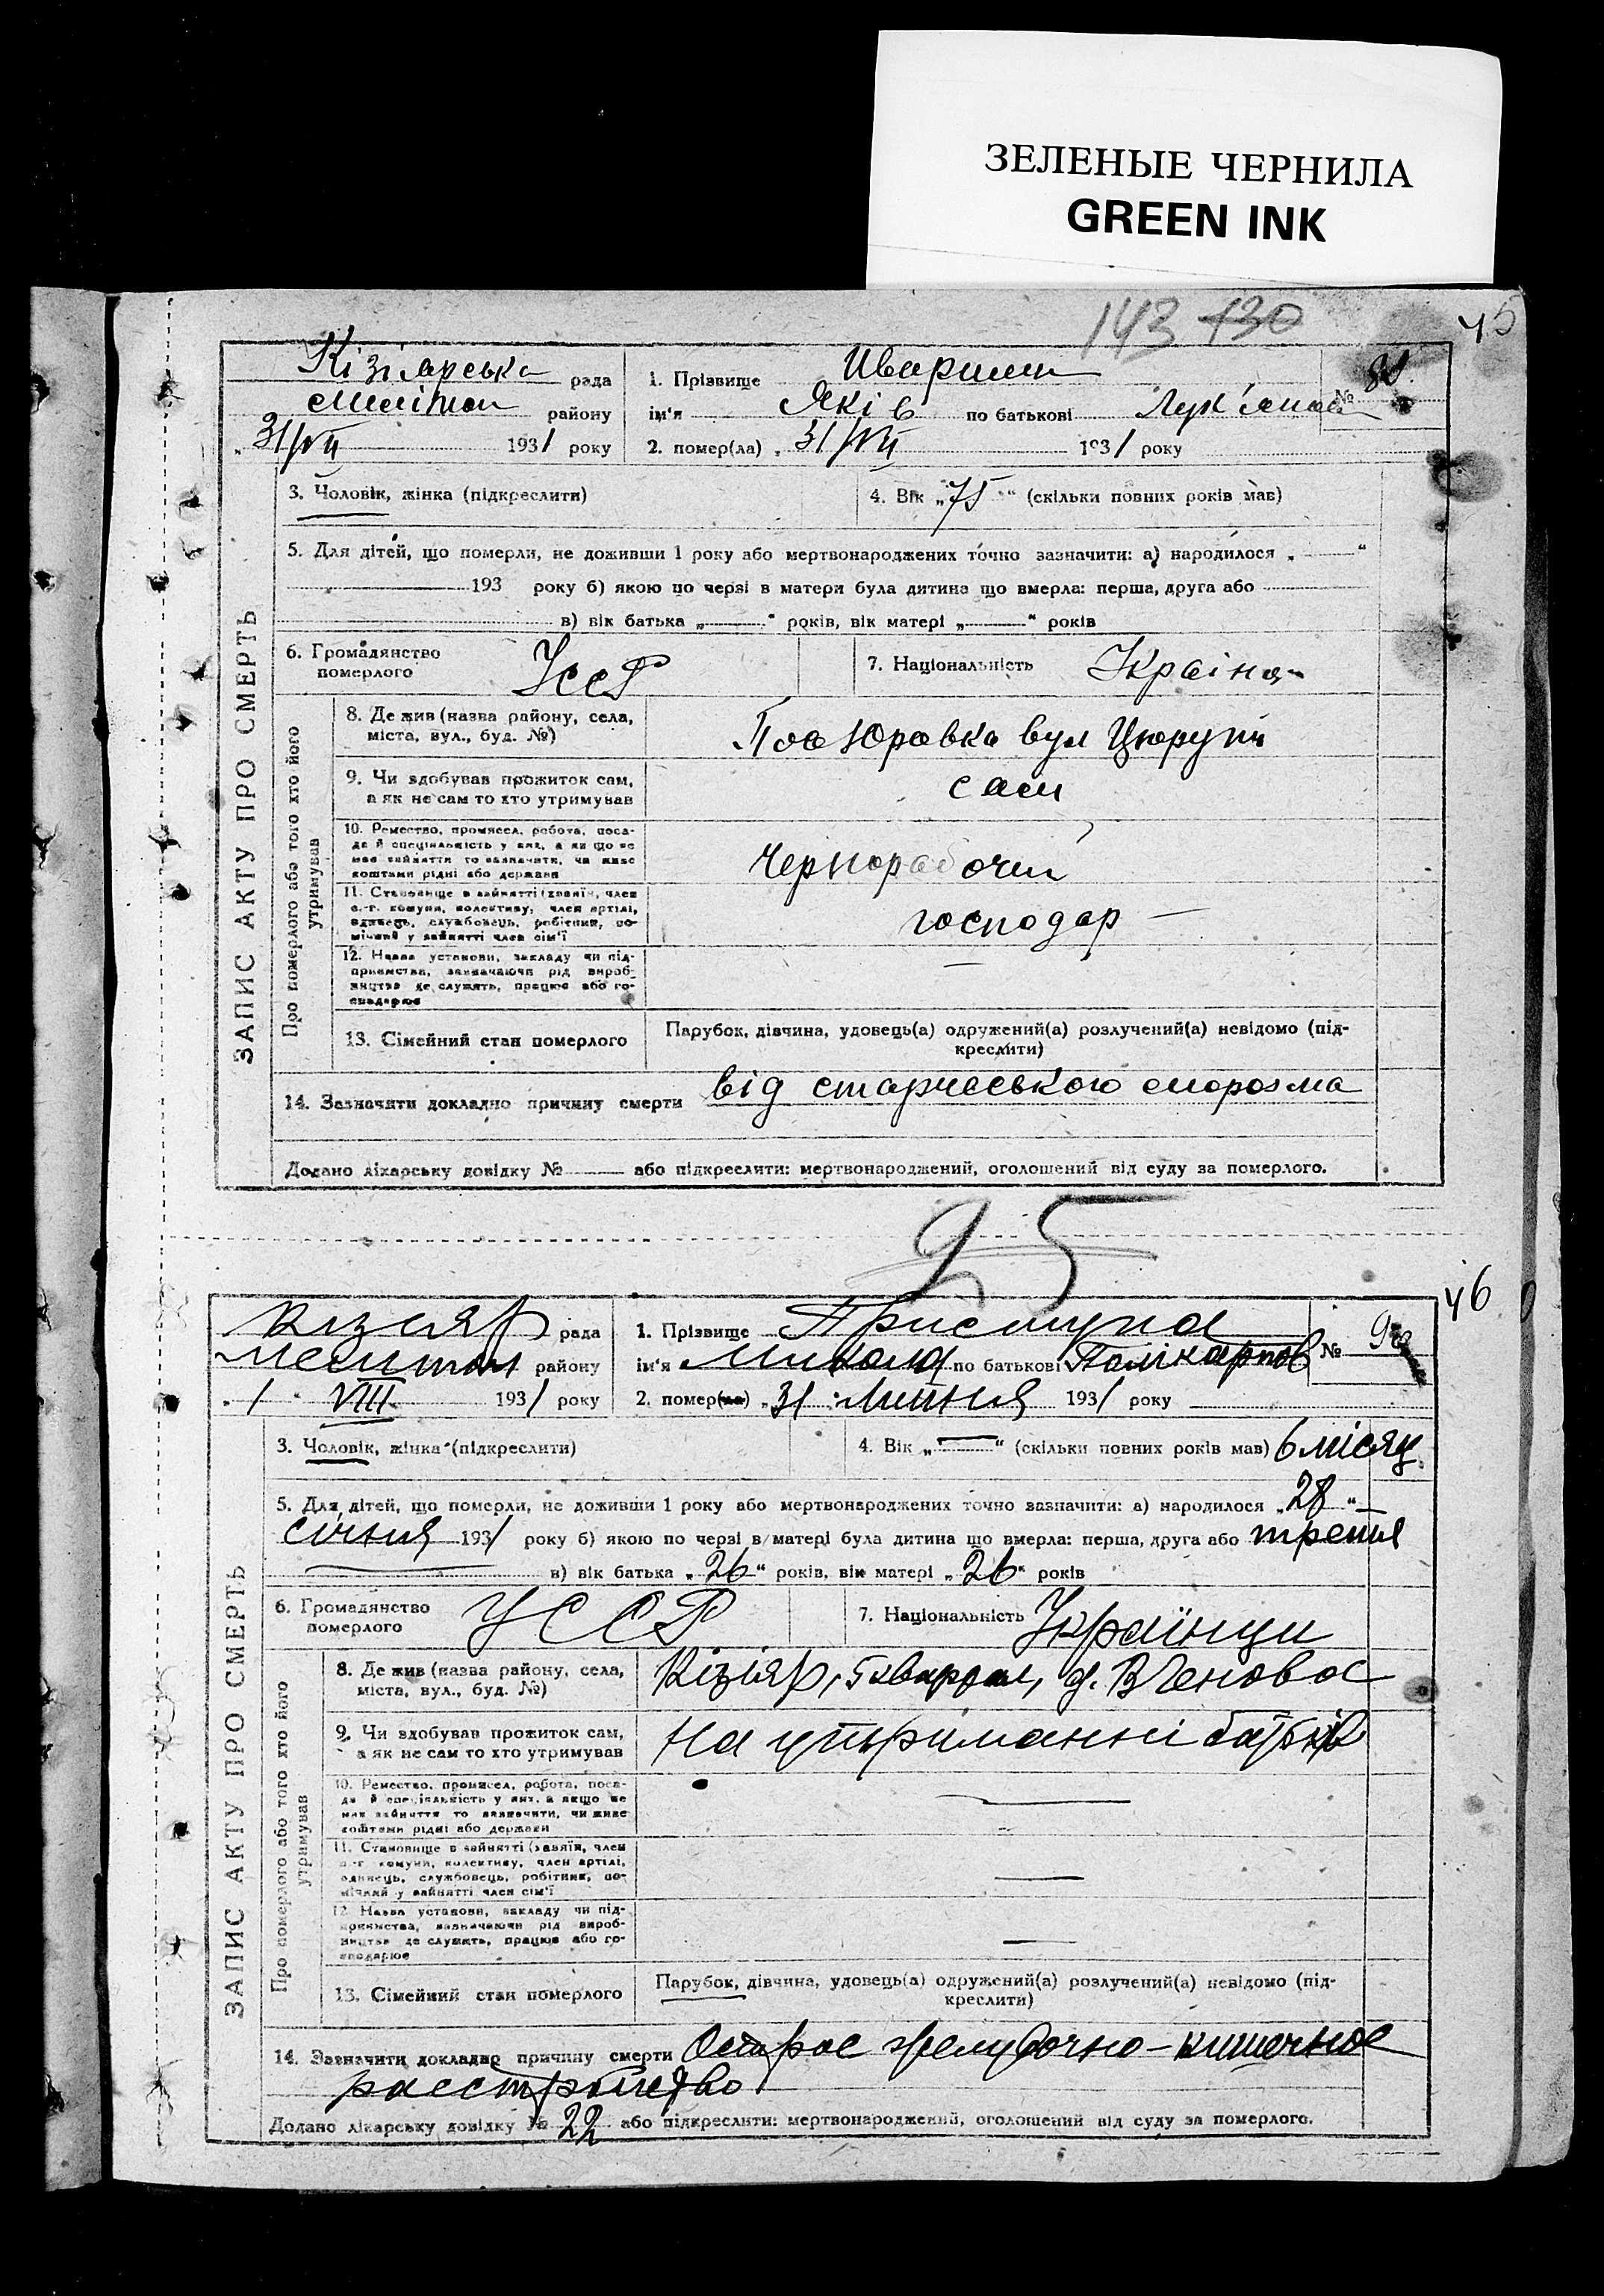 ЗЕЛЕНЫЕ ЧЕРНИЛА
GREEN INK
143 130
45
Кізіярська рада
Мелітоп району
31/VII 1931 року
1. Прізвище
№
ім'я Яків по батькові
2. помер(ла) „ 31/VII 1931 року
ЗАПИС АКТУ ПРО СМЕРТЬ
3. Чоловік, жінка (підкреслити)
4. Вік „75“ (скільки повних років мав)
5. Для дітей, що померли, не доживши 1 року або мертвонароджених точно зазначити: а) народилося „ “
193 року б) якою по черзі в матери була дитина що вмерла: перша, друга або
в) вік батька „ “ років, вік матері „ “ років
6. Громадянство померлого УССР
7. Національність Україне
Про померлого або того хто його утримував
8. Де жив (назва району, села,
міста, вул., буд. №)
Пос Юровка вул Цюрупи
9. Чи здобував прожиток сам,
а як не сам то хто утримував
сам
10. Ремество, промисел, робота, поса-
да й спеціяльність у них, а як що не
мав зайняття то зазначити, чи живе
коштами рідні або держави
Чернорабочий
11. Становище в зайнятті (хазяїн, член
с.-г. комуни, колективу, член артілі,
одинець, службовець, робітник, по-
мічний у зайнятті член сім'ї
господар
12. Назва установи, закладу чи під-
приємства, зазначаючи рід вироб-
ництва де служить, працює або го-
сподарює
13. Сімейний стан померлого
Парубок, дівчина, удовець(а) одружений(а) розлучений(а) невідомо (під-
креслити)
14. Зазначити докладно причину смерти від старческого
Додано лікарську довідку № або підкреслити: мертвонароджений, оголошений від суду за померлого.
95
46
Кізіяр рада
Мелитоп району
„1“ VIII 1931 року
1. Прізвище Приступа
№
ім'я Микола по батькові Полікарпов
2. помер(ла) „31 Липня 1931 року
ЗАПИС АКТУ ПРО СМЕРТЬ
3. Чоловік, жінка (підкреслити)
4. Вік „ “ (скільки повних років мав) 6 місяц
5. Для дітей, що померли, не доживши 1 року або мертвонароджених точно зазначити: а) народилося „28“
січня 1931 року б) якою по черзі в матері була дитина що вмерла: перша, друга або третя
в) вік батька „26“ років, вік матері „26“ років
6. Громадянство померлого УССР
7. Національність Українци
Про померлого або того хто його утримував
8. Де жив (назва району, села,
міста, вул., буд. №)
Кізіяр, 5 квартал,
9. Чи здобував прожиток сам,
а як не сам то хто утримував
На утриманні батьків
10. Ремество, промисел, робота, поса-
да й спеціяльність у них, а якщо не
мав зайняття то зазначити, чи живе
коштами рідні або держави
11. Становище в зайнятті (хазяїн, член
с.-г. комуни, колективу, член артілі,
одинець, службовець, робітник, по-
мічний у зайнятті член сім'ї
12. Назва установи, закладу чи під-
приємства, зазначаючи рід вироб-
ництва де служить, працює або го-
сподарює
13. Сімейний стан померлого
Парубок, дівчина, удовець(а) одружений(а) розлучений(а) невідомо (під-
креслити)
14. Зазначити докладно причину смерти Острое желудочно-кишечное
расстройство
Додано лікарську довідку № 22 або підкреслити: мертвонароджений, оголошений від суду за померлого.